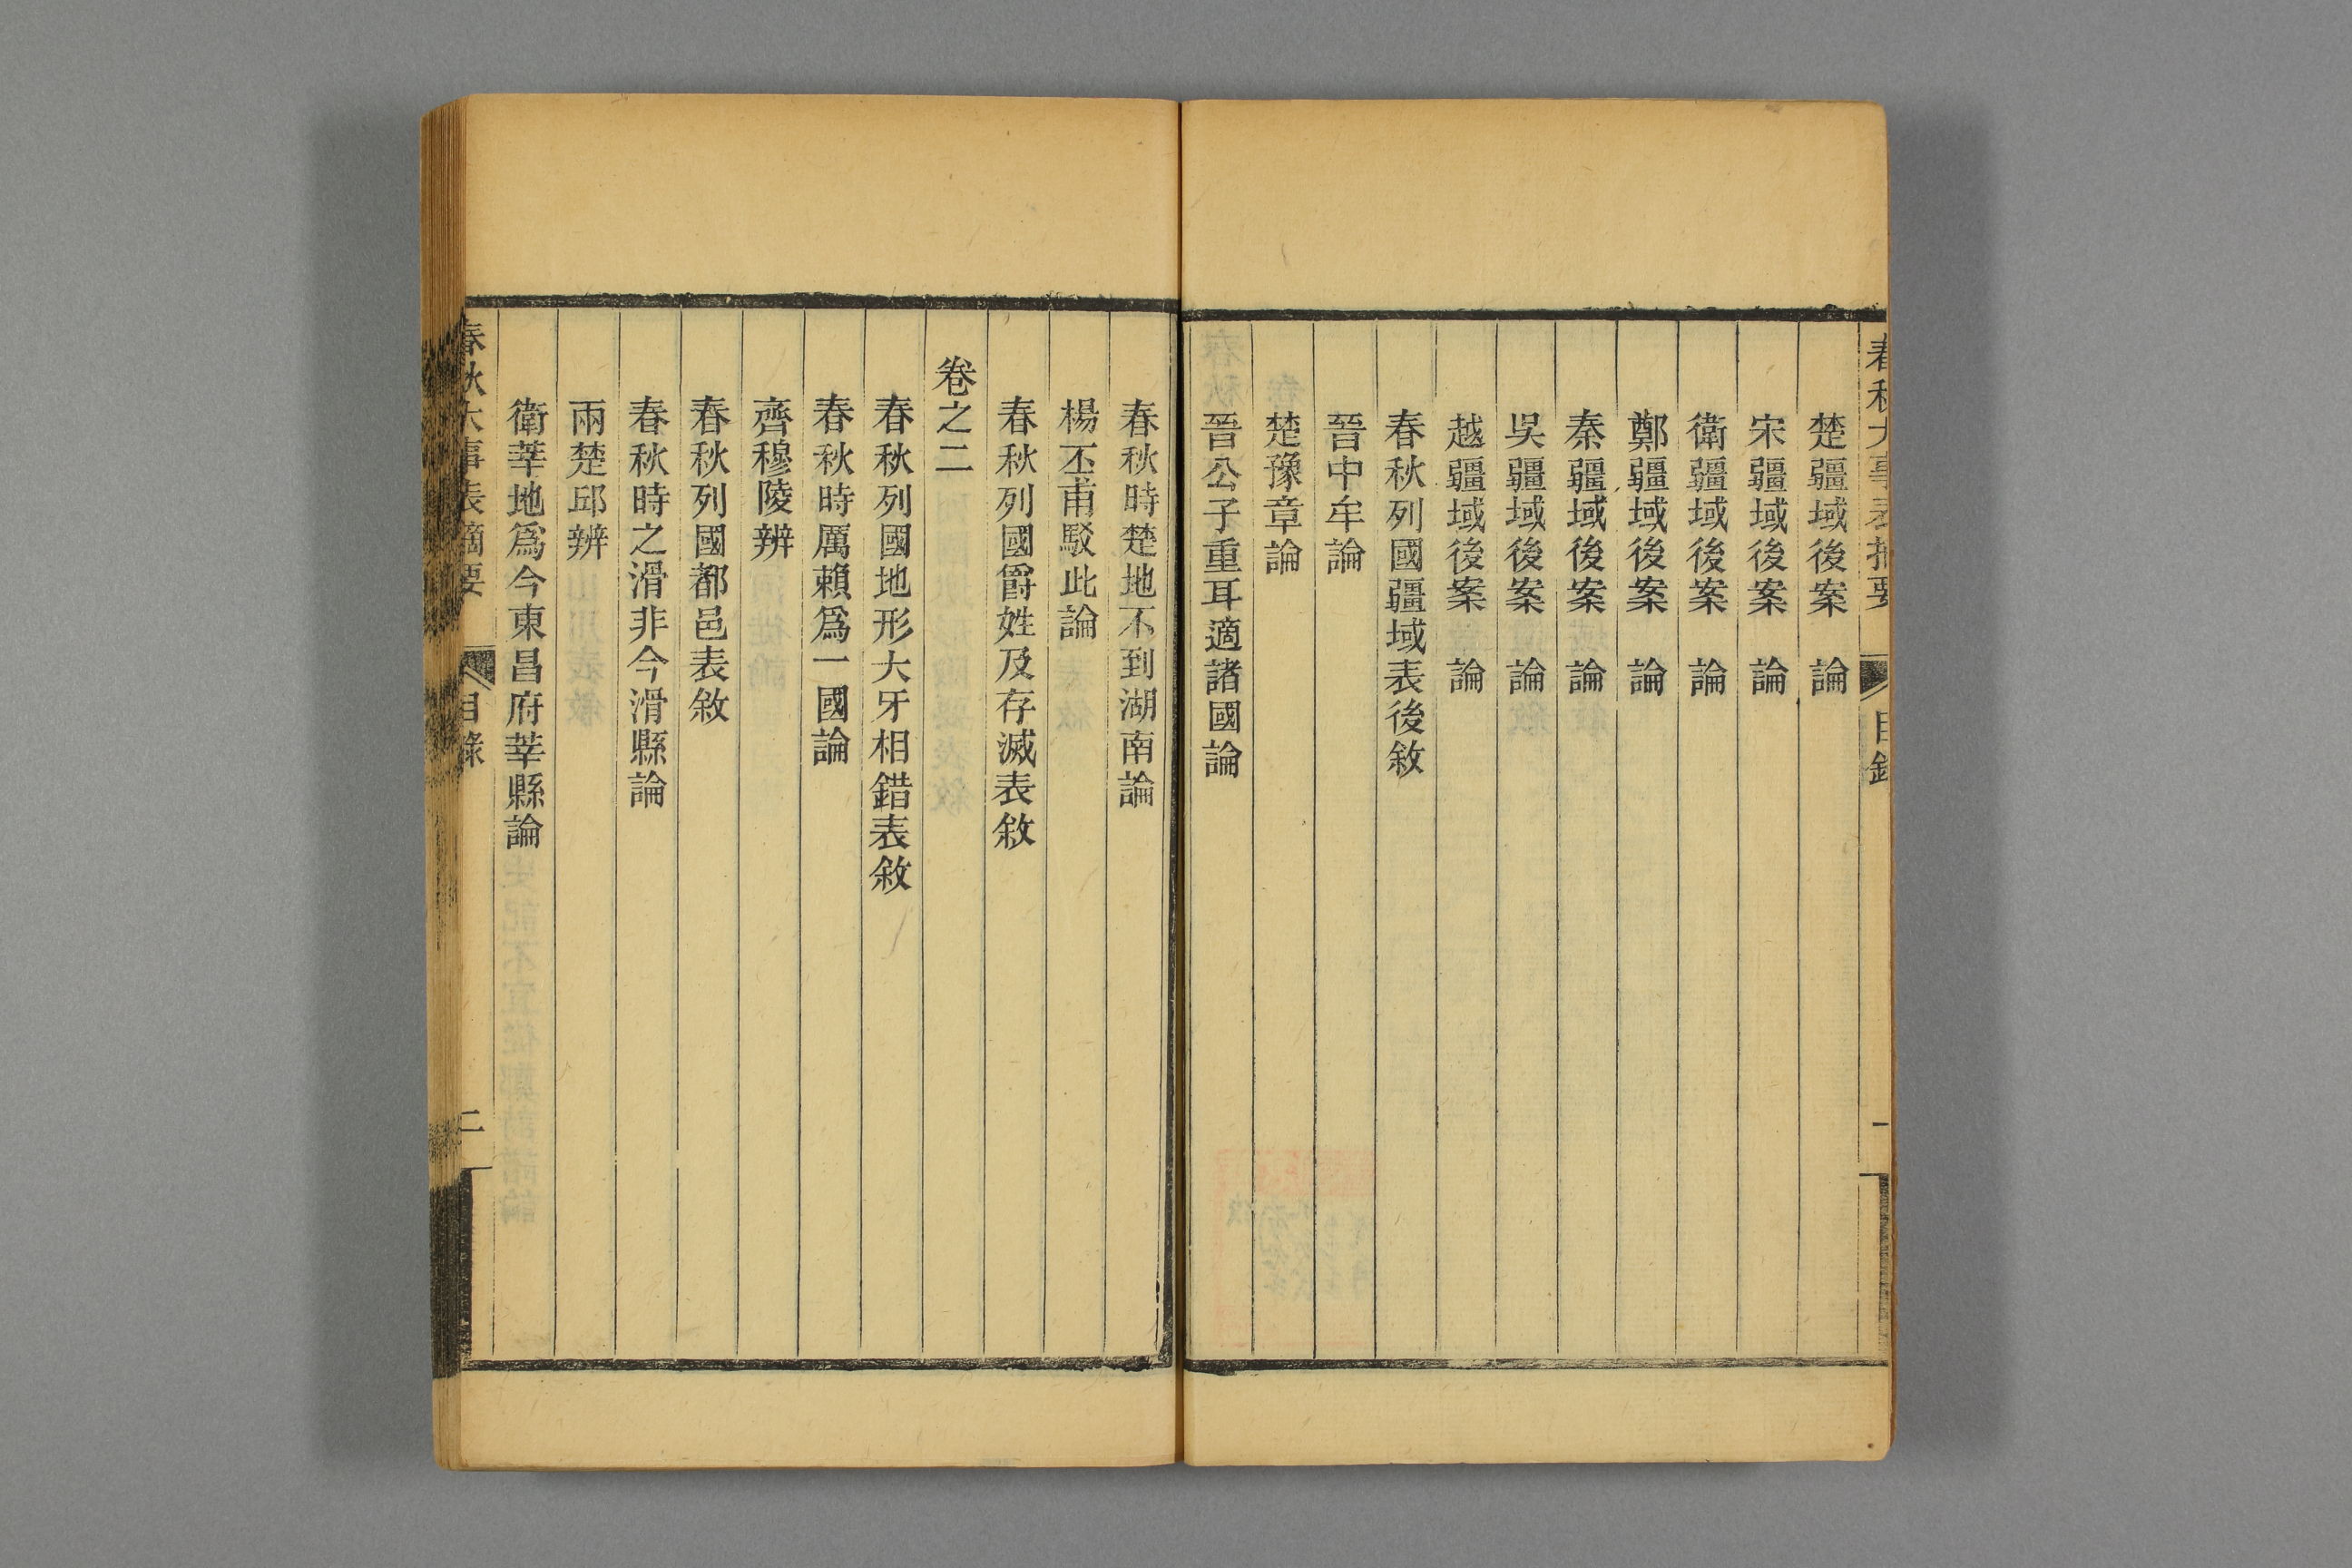 春秋大事表摘要 目錄 一
楚疆域後案 論
宋疆域後案 論
衛疆域後案 論
鄭疆域後案 論
秦疆域後案 論
吳疆域後案 論
越疆域後案 論
春秋列國疆域表後敘
晉中牟論
楚豫章論
晉公子重耳適諸國論
春秋時楚地不到湖南論
楊丕甫駁此論
春秋列國爵姓及存滅表敘
卷之二
春秋列國地形犬牙相錯表敘
春秋時厲賴爲一國論
齊穆陵辨
春秋列國都邑表敘
春秋時之滑非今滑縣論
兩楚邱辨
衛莘地爲今東昌府莘縣論
春秋大事表摘要 目錄 二